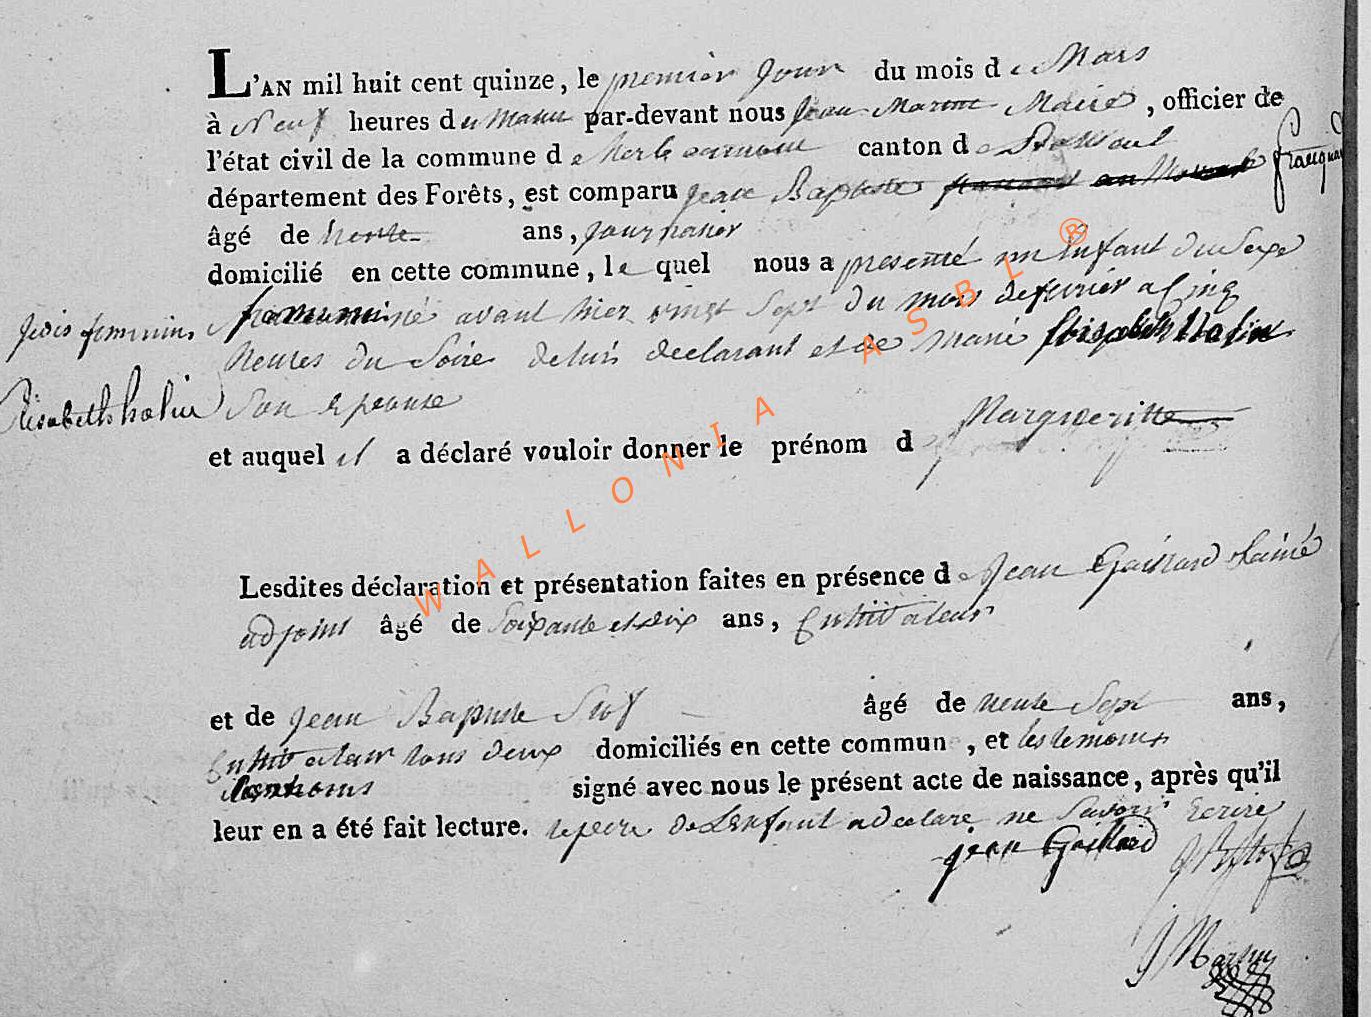 L'AN mil huit cent quinze, le premier Jour du mois de Mars
à Neuf heures du Matin par-devant nous Jean Martin Maire, officier de
l'état civil de la commune de canton de
département des Forêts, est comparu Jean Baptiste
âgé de trente ans, Journalier
domicilié en cette commune, le quel nous a présenté un Enfant du Sexe
feminin né avant hier vingt Sept du mois de fevrier a Cinq
heures du Soire de lui declarant et de Marie
Elisabeth halin
Son Epouse
et auquel il a déclaré vouloir donner le prénom de Margueritte
Lesdites déclaration et présentation faites en présence de Jean Gaillard Lainé
adjoint âgé de Soixante et dix ans, Cultivateur
et de Jean Baptiste âgé de trente Sept ans,
Cultivateur tous deux domiciliés en cette commun, et les temoins
signé avec nous le présent acte de naissance, après qu'il
leur en a été fait lecture. le pere de L'Enfant a declare ne Savoir Ecrire
jean Gaillard
J Martin
WALLONIA ASBL ®